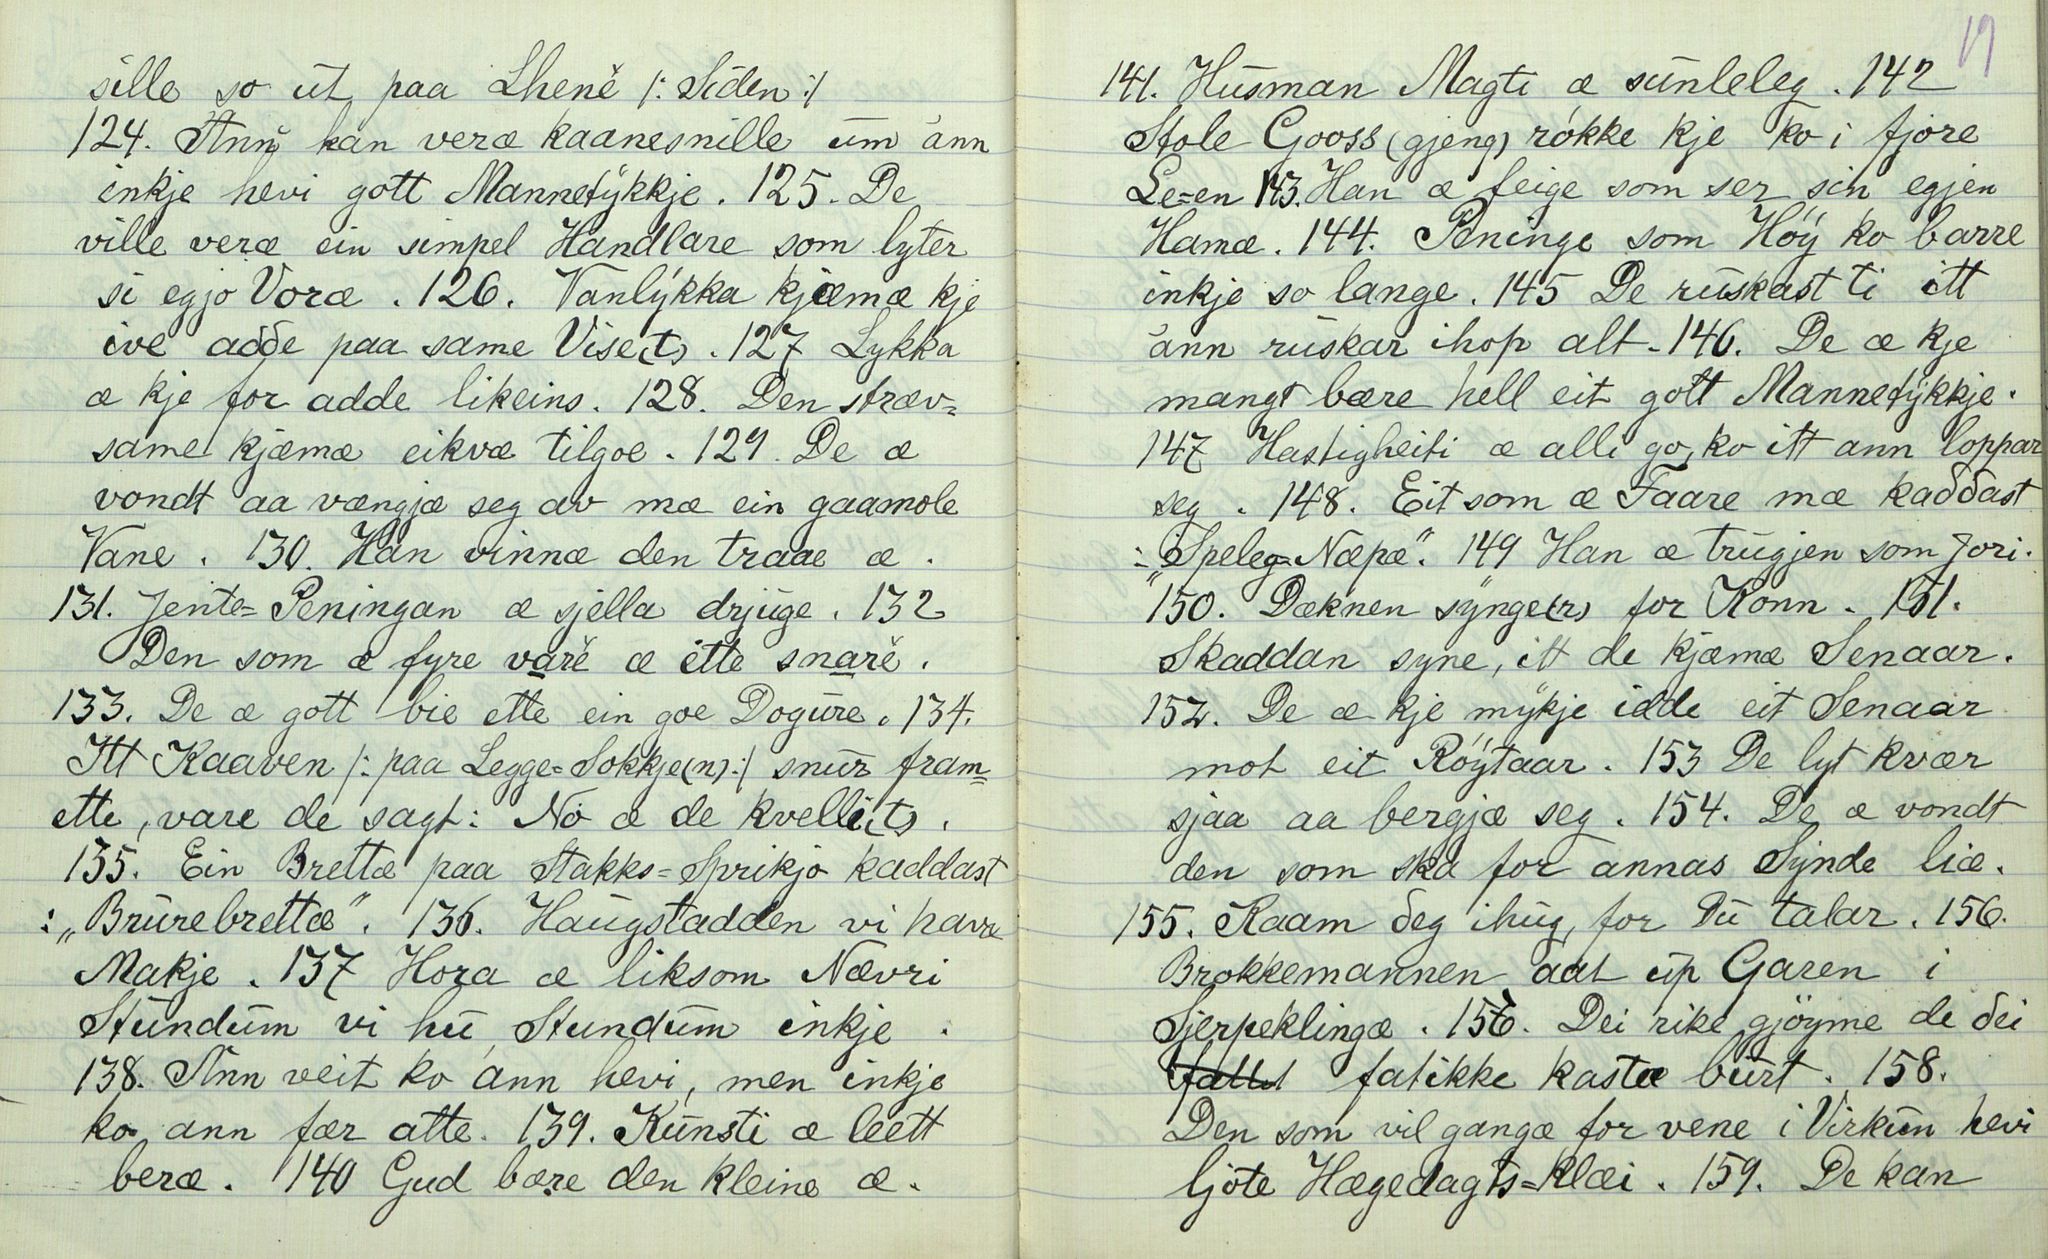 sille so út paa Lhenĕ /: Síden :/
124. Ann kan veræ kaanesnille úm ànn
inkje hevi gott Mannetýkkje. 125. De
ville veræ ein simpel Handlare som lyter
si egjo Voræ. 126. Vanlýkka kjæmæ kje
ive adðe paa same Vise(t). 127 Lykka
æ kje for adde likeins. 128. Den stræv-
same kjæmæ eikvæ tilgoe. 129. De æ
vondt aa vængjæ seg av mæ ein gaamole
Vane. 130. Han vinnæ den traae æ.
131. Jente-Peningan æ sjella drjúge. 132
Den som æ fyre varĕ æ ette snarĕ.
133. De æ gott bie ette ein goe Dogúre. 134.
Itt Kaaven /: paa Legge-Sokkje(n) :/ snúr fram-
ette, vare de sagt: No æ de kvelli(t).
135. Ein Brettæ paa Stakks-Sprikjo kaddast
: „Brúrebrettæ". 136. Haúgstadden vi havæ
Makje. 137 Hora æ liksom Nævri
Stúndúm vi hú, Stundúm inkje.
138. Ann veit ko ànn hevi, men inkje
ko ann fær atte. 139. Kúnsti æ leett
beræ. 140 Gud bære den kleine æ.
19
141. Húsman Magti æ súnleleg. 142
Stole Gooss (gjeng) rókke kje ko i fjore
Le-en 143. Han æ feige som ser sin egjen
Hamæ. 144. Peninge som Höý ko barre
inkje so lange. 145 De rúskast ti itt
ànn rúskar ihop alt. 146. De æ kje
mangt bære hell eit gott Mannetýkkje.
147 Hastigheiti æ alli go, ko itt ann loppar
seg. 148. Eit som æ Faare mæ kaððast
: „Speleg-Næpæ". 149 Han æ trúgjen som Jori.
150. Dæknen sýnge(r) for Konn. 151.
Skaddan syne, itt de kjæmæ Senaar.
152. De æ kje mýkje idde eit Senaar
mot eit Röýtaar. 153 De lyt kvær
sjaa aa bergjæ seg. 154. De æ vondt
den som ska for annas Sýnde liæ.
155. Raam ðeg ihúg, for Dú talar. 156.
Brokkemannen aat úp Garen i
Sjerpeklingæ. 156. Dei rike gjöyme de ðei
fatikke kastæ búrt. 158.
Den som vil gangæ for vene i Virkún hevi
ljóte Hægedagts-klæi. 159. De kan